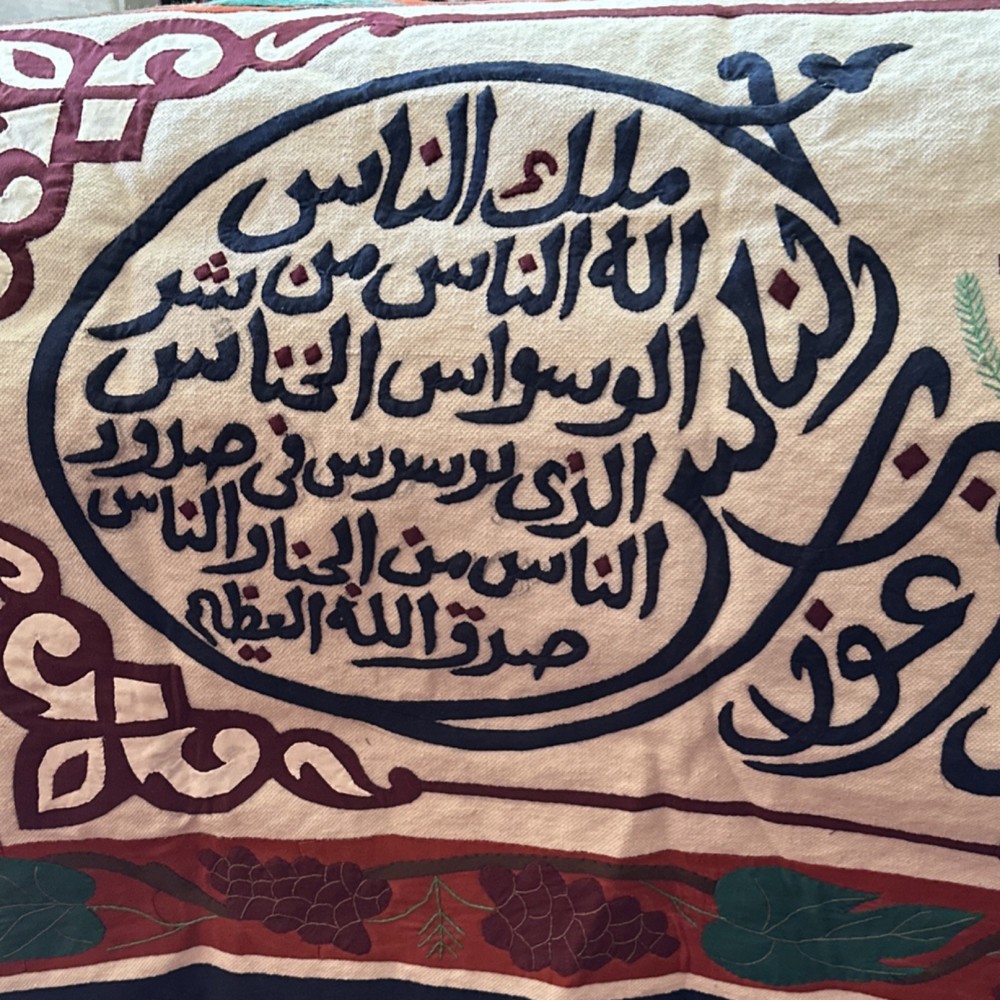 عوذ
الناس
ملك الناس
اله الناس من شر
الوسواس الخناس
الذى يوسوس فى صدور
الناس من الجنة والناس
صدق الله العظيم